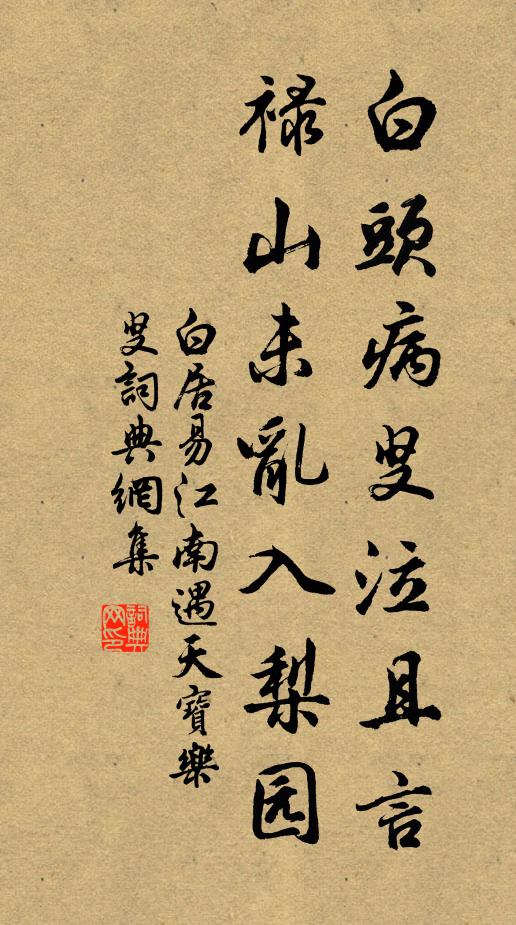 白頭病叟泣且言
禄山未亂入梨园
白居易江南遇天寶樂
叟詞典網集
詞典
网印